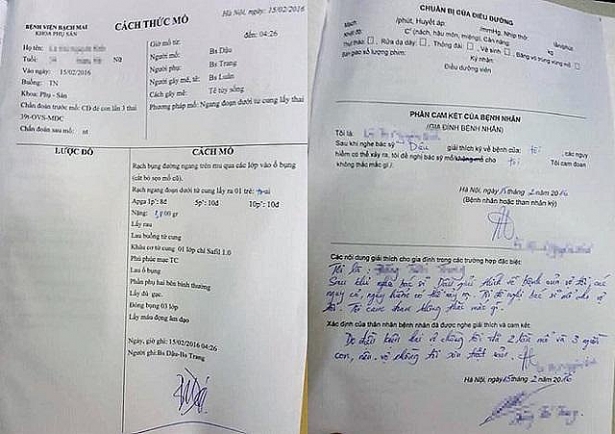 BỆNH VIỆN BẠCH MAI
KHOA PHỤ SẢN
CÁCH THỨC MỔ
Hà Nội, ngày: 15/02/2016
Họ tên:
Tuổi: Nữ
Vào ngày: 15/02/2016
Buồng: TN
Khoa: Phụ - Sản
Chẩn đoán trước mổ: CD đẻ con lần 3 thai
39t-OVS-MDC
Chẩn đoán sau mổ: nt
Giờ mổ từ: đến: 04:26
Người mổ: Bs Dậu
Người phụ: Bs Trang
Người gây mê, tê: Bs Luân
Cách gây mê: Tê tủy sống
Phương pháp mổ: Ngang đoạn dưới tử cung lấy thai
LƯỢC ĐỒ
CÁCH MỔ
Rạch bụng đường ngang trên mu qua các lớp vào ổ bụng
(cắt bỏ sẹo mổ cũ).
Rạch ngang đoạn dưới tử cung lấy ra 01 trẻ:
Apga 1p': 8đ 5p': 10đ 10p': 10đ
Nặng: gr
Lấy rau
Lau buồng tử cung
Khâu cơ tử cung 01 lớp chỉ Safil 1.0
Phủ phúc mạc TC
Lau ổ bụng
Phần phụ hai bên bình thường
Lấy đủ gạc.
Đóng bụng 03 lớp
Lấy máu đọng âm đạo
Ngày, giờ ghi: 15/02/2016 04:26
Người ghi: Bs Dậu-Bs Trang
CHUẨN BỊ CỦA ĐIỀU DƯỠNG
Mạch /phút, Huyết áp: /mmHg, Nhịp thở: lần/phút
Nhiệt độ C° (hách, hầu môn, miệng), Cân nặng
Thử tháo , Rửa dạ dày , Thông đái , Vệ sinh , Băng vô trùng vùng mổ
Bàn giao số lượng phim:
Ký nhận:
Điều dưỡng viên
PHẦN CAM KẾT CỦA BỆNH NHÂN
(GIA ĐÌNH BỆNH NHÂN)
Tôi là:
Sau khi nghe bác sỹ Dậu giải thích kỹ về bệnh của: tôi, các nguy
hiểm có thể xảy ra, tôi đề nghị bác sỹ mổ không mổ cho tôi Tôi cam đoan
không thắc mắc gì./.
Hà Nội, ngày 15 / 2 năm 2016
(Bệnh nhân hoặc thân nhân ký)
Các nội dung giải thích cho gia đình trong các trường hợp đặc biệt:
Tôi là:
Sau khi nghe bác sĩ Dậu giải thích về bệnh của vợ tôi, các
nguy cơ, nguy hiểm có thể xảy ra. Tôi đề nghị bác sĩ mổ cho vợ
tôi. Tôi cam đoan không thắc mắc gì.
Xác định của thân nhân bệnh nhân đã được nghe giải thích và cam kết:
Do điều kiện hai vợ chồng tôi đã 2 lần mổ và 3 người
con, nên vợ chồng tôi xin triệt sản.
Hà Nội, ngày 15 / 2 năm 2016